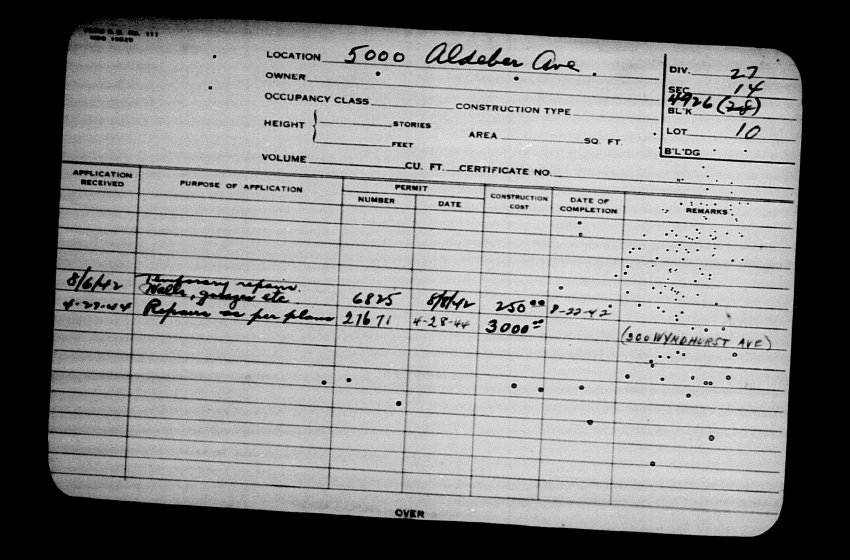 LOCATION 5000 Aldeber Ave.
OWNER
OCCUPANCY CLASS CONSTRUCTION TYPE
HEIGHT STORIES AREA SQ. FT.
FEET
VOLUME CU. FT. CERTIFICATE NO.
DIV. 27
SEC 14
4926 (28)
BL'K
LOT 10
B'L'DG
APPLICATION RECEIVED PURPOSE OF APPLICATION PERMIT NUMBER DATE CONSTRUCTION COST DATE OF COMPLETION REMARKS
8/6/42 Temporary repairs.
Walls, garages etc 6825 8/8/42 250.00 8-22-42
4-27-44 Repairs as per plans 21671 4-28-44 3000.00
(300 WYNDHURST AVE)
OVER